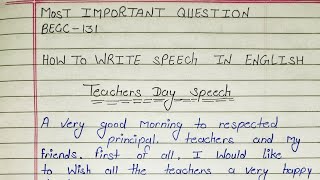 MOST IMPORTANT QUESTION
BEGC-131
HOW TO WRITE SPEECH IN ENGLISH
Teachers Day speech
A very good morning to respected
principal, teachers and my
friends. First of all, I would like
to wish all the teachers a very happy